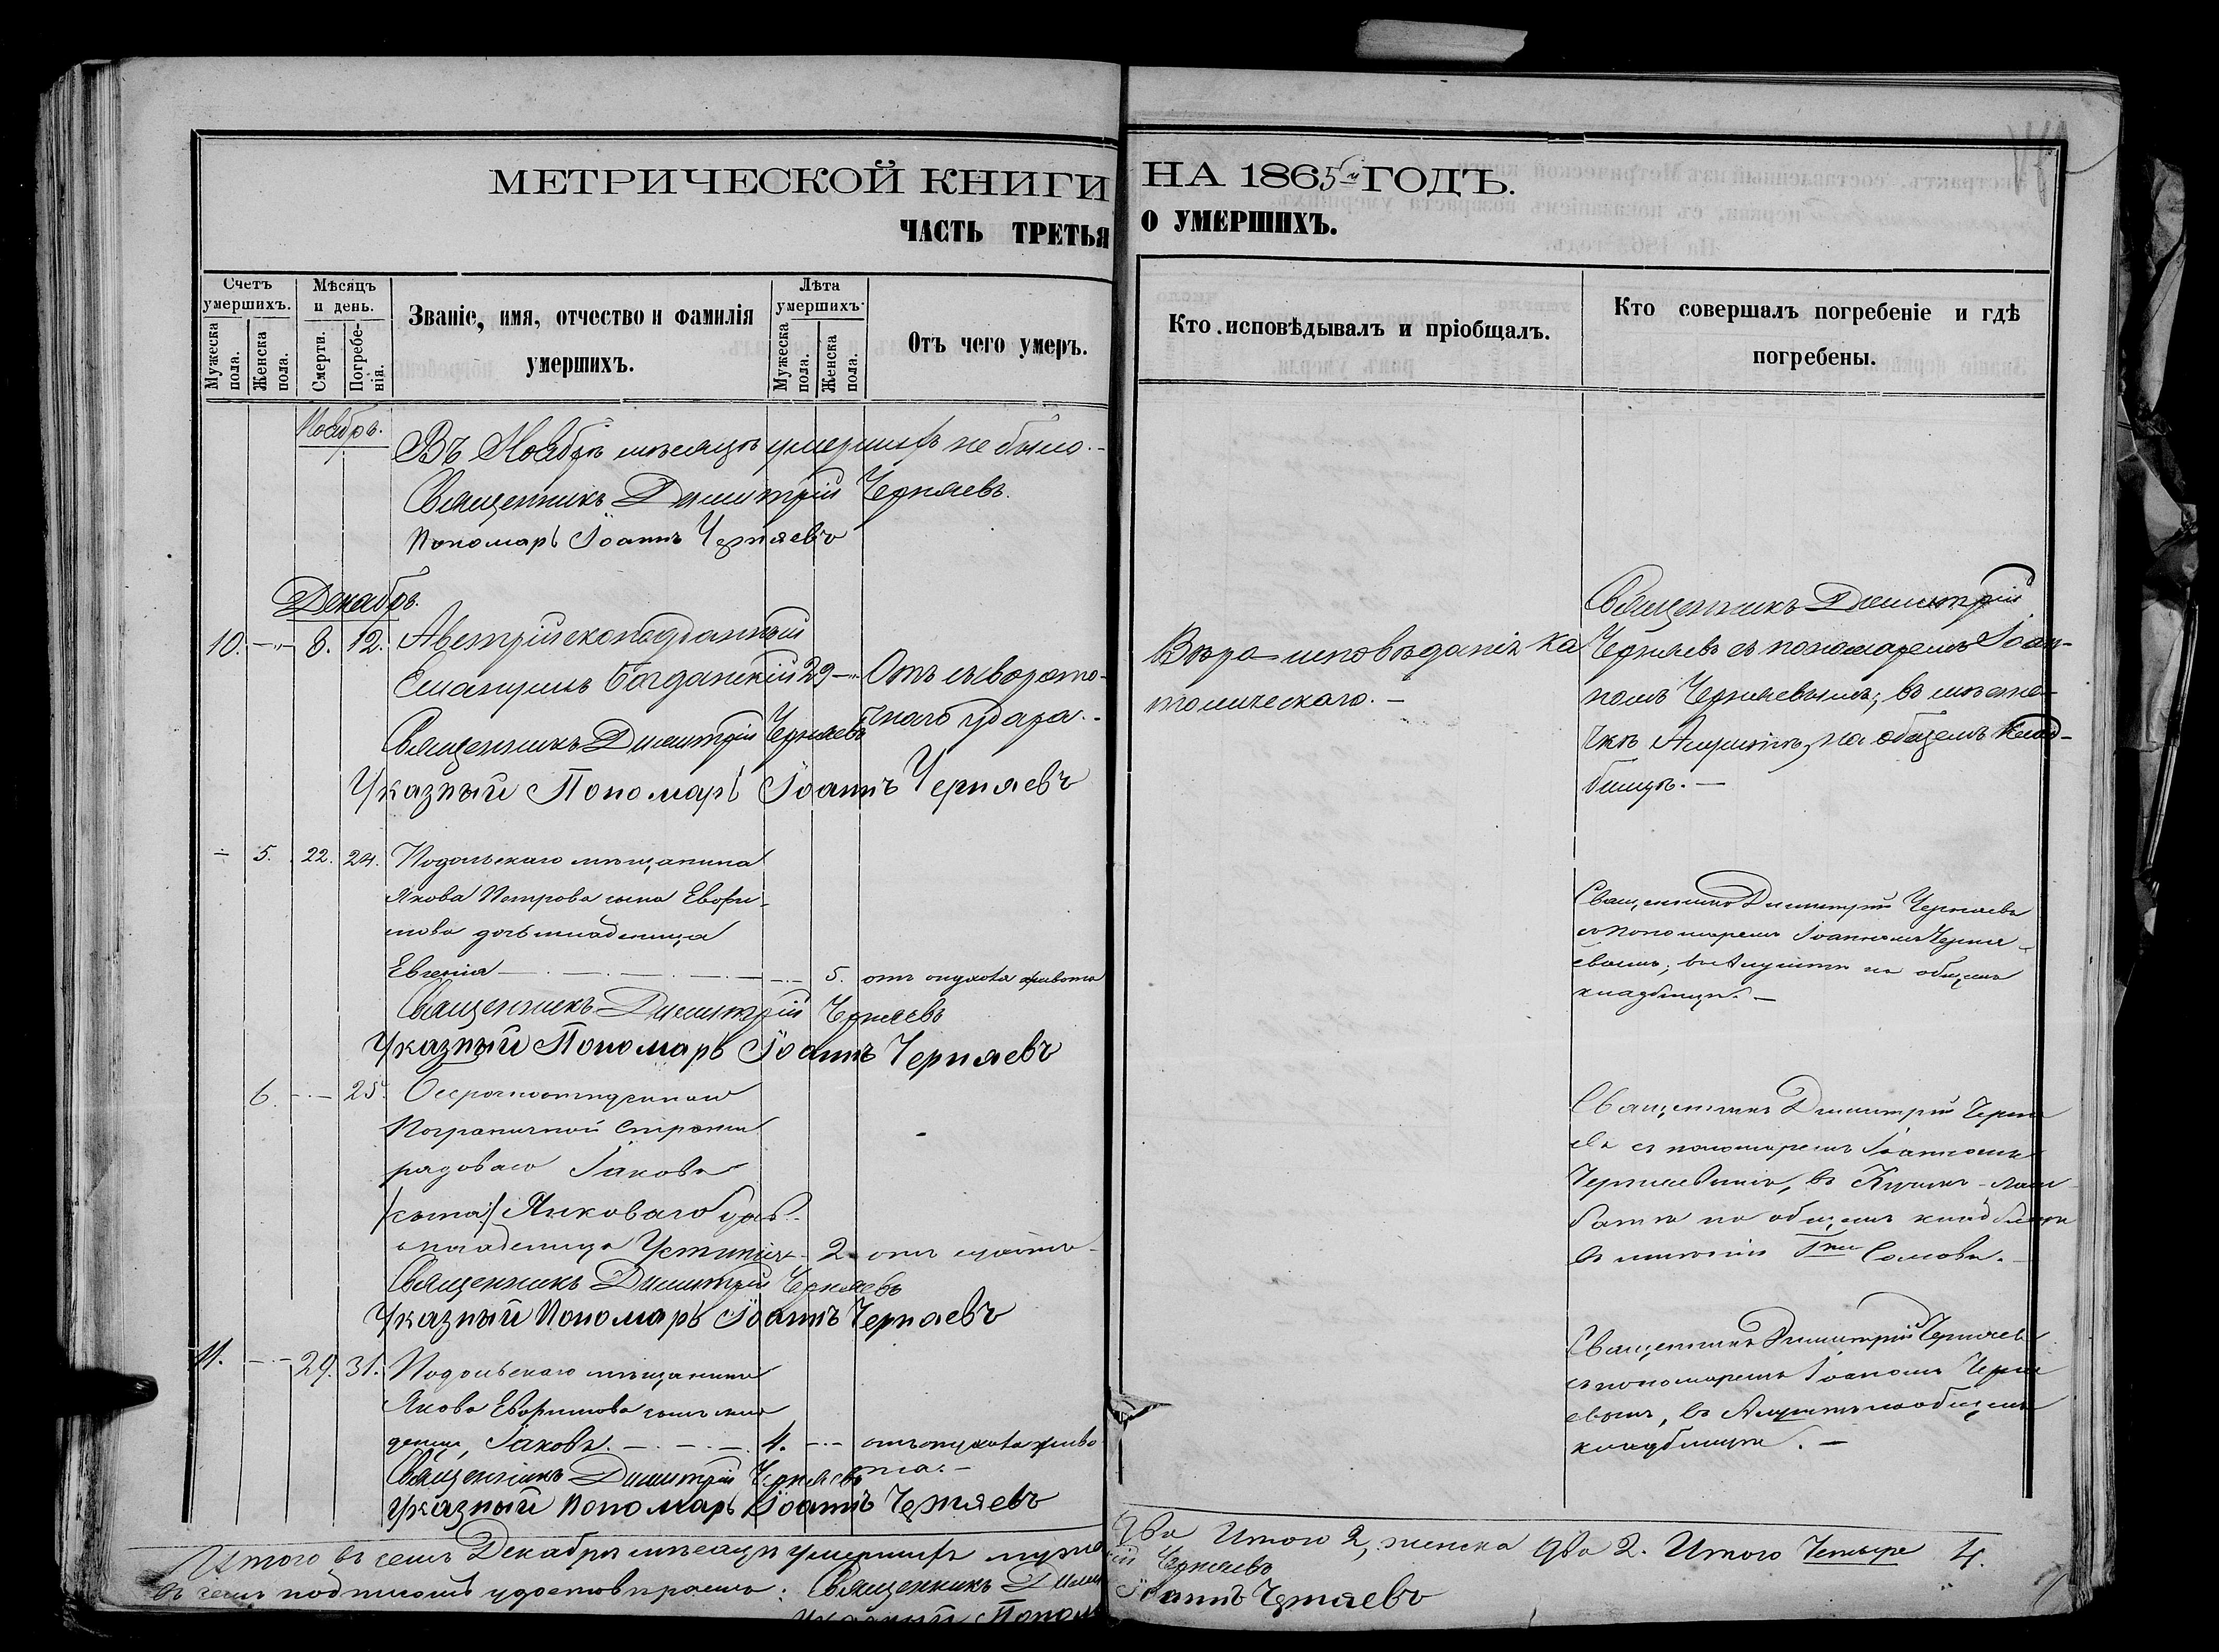 МЕТРИЧЕСКОЙ КНИГИ НА 1865й ГОДЪ.
ЧАСТЬ ТРЕТЬЯ О УМЕРШИХЪ.
Счетъ умершихъ.
Мужеска пола.
Женска пола.
Мѣсяцъ и день.
Смерти.
Погребенія.
Званіе, имя, отчество и фамилія
умершихъ.
Лѣта умершихъ.
Мужеска пола.
Женска пола.
Отъ чего умеръ.
Кто исповѣдывалъ и пріобщалъ.
Кто совершалъ погребеніе и гдѣ
погребены.
Ноябрь.
Въ Ноябрѣ мѣсяцѣ умершихъ не было.-
Священникъ Димитрій Черняевъ.
Пономарь Іоаннъ Черняевъ
Декабрь.
10. 8. 12. Австрійскоподданный
Емануилъ Богданскій 29 Отъ
наго удара.-
Священникъ Димитрій Черняевъ
Указный Пономарь Іоаннъ Черняевъ
исповѣданія Ка
толическаго.-
Священникъ Димитрій
Черняевъ съ пономаремъ Іоан-
номъ Черняевымъ; въ мѣсте-
чкѣ на общемъ клад-
бищѣ.-
5. 22. 24. Подольскаго мѣщанина
Якова Петрова сына Евфи-
мова дочь младеница
Евгенія 5. отъ живота
Священникъ Димитрій Черняевъ
Указный Пономарь Іоаннъ Черняевъ
Священникъ Димитрій Черняевъ
съ пономаремъ Іоанномъ Черня-
евымъ; въ на общемъ
кладбищѣ.-
6. 25.
Пограничной Стражи
рядоваго Іакова
/сына/ дочь
младеница Устинія 2 отъ
Священникъ Димитрій Черняевъ
Указный Пономарь Іоаннъ Черняевъ
Священникъ Димитрій Черня
евъ съ пономаремъ Іоанномъ
Черняевымъ, въ
на общемъ кладбищѣ
въ имѣніи
11. 29. 31. Подольскаго мѣщанина
Якова Евфимова сынъ мла
денецъ, Іаковъ. 4. отъ живо
та.-
Священникъ Димитрій Черняевъ
Указный Пономарь Іоаннъ Черняевъ
Священникъ Димитрій Черняевъ
съ пономаремъ Іоанномъ Черня
евымъ, въ на общемъ
кладбищѣ.-
Итого въ семъ Декабрѣ мѣсяцѣ умершихъ мужес два Итого 2, женска два 2. Итого Четыре 4.
въ чемъ подписомъ удостовѣряемъ: Священникъ Димит рій Черняевъ
Указный Поном Іоаннъ Черняевъ